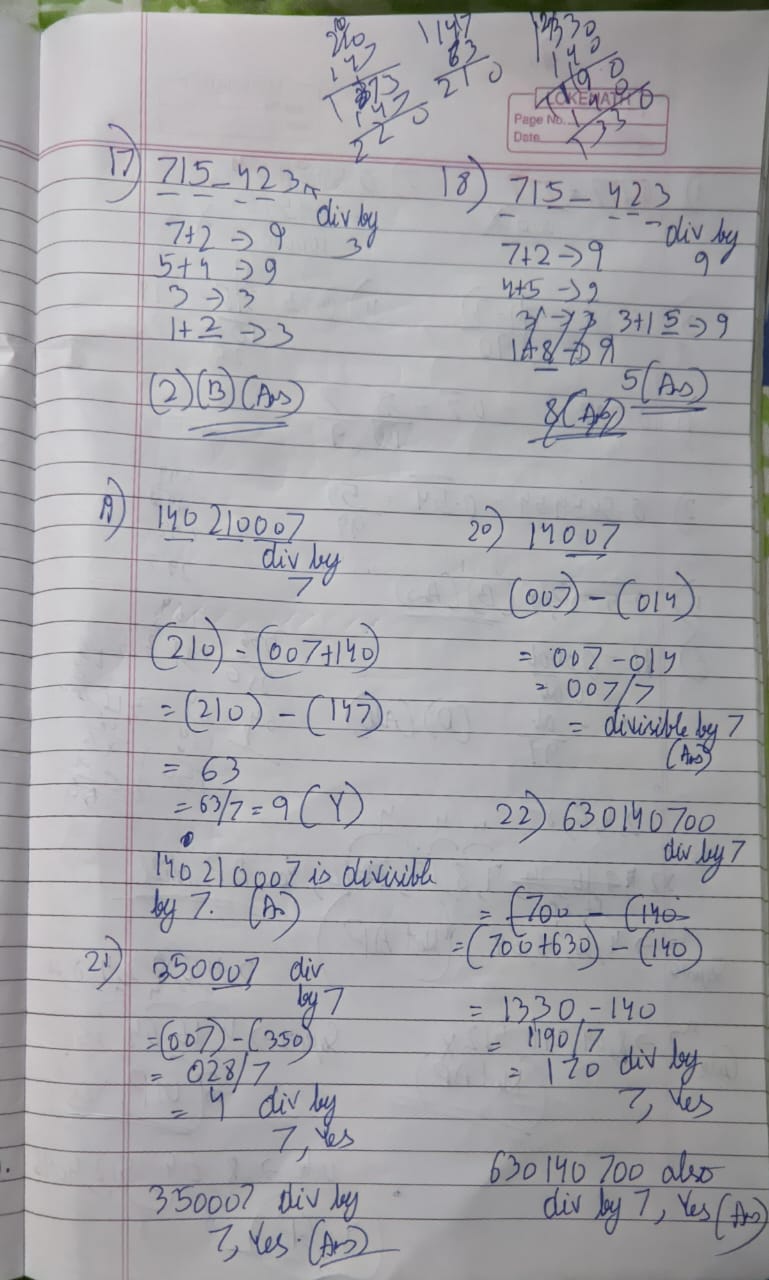 1147
63
210
1330
140
1190
LOKENATH
Page No.
Date
17) 715-423
div by
3
7+2 → 9
5+4 → 9
3 → 3
1+2 → 3
(2)(B)(Ans)
18) 715-423
div by
9
7+2 → 9
4+5 → 9
3 → 3 3+1 5 → 9
1+8 → 9
5(Ans)
8(Ans)
19) 140210007
div by
7
(210) - (007+140)
= (210) - (147)
= 63
= 63/7 = 9 (Y)
140210007 is divisible
by 7.
20) 14007
(007) - (014)
= 007-014
= 007/7
= divisible by 7
(Ans)
21) 350007 div
by 7
=(007)-(350)
= 028/7
= 4 div by
7, Yes
350007 div by
7, Yes. (Ans)
22) 630140700
div by 7
= (700 - (140
=(700+630) - (140)
= 1330-140
= 1190/7
= 170 div by
7, Yes
630140700 also
div by 7, Yes (Ans)